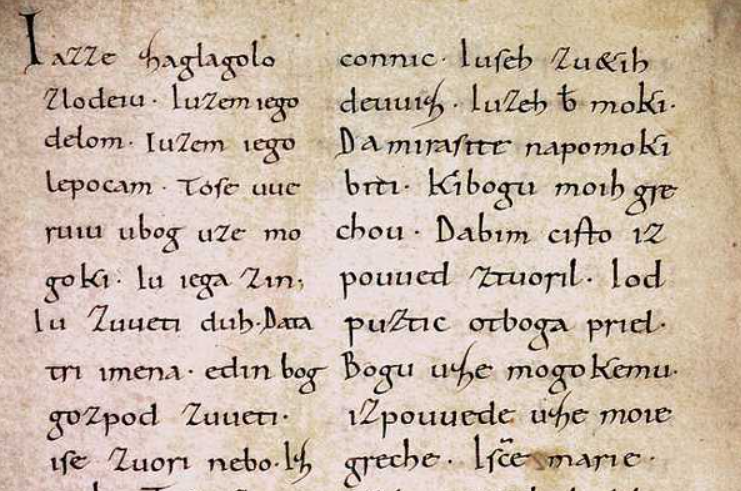 Iazze zaglagolo
zlodeiu. Iuzem iego
delom. Iuzem iego
lepocam. Tose uue
ruiu ubog uze mo
goki. Iu iega zin,
Iu zuueti duh. Data
tri imena. edin bog
gozpod zuueti.
ise zuori nebo. Iz
connic. Iuseh zu&ih
deuuiz. Iuzeh b̄ moki.
Da mirasite napomoki
biti. Kibogu moih gre
chou. Dabim cisto iz
pouued ztuoril. Iod
puztic otboga priel.
Bogu uze mogokemu.
izpouuede uze moie
greche. Isc̄e marie.